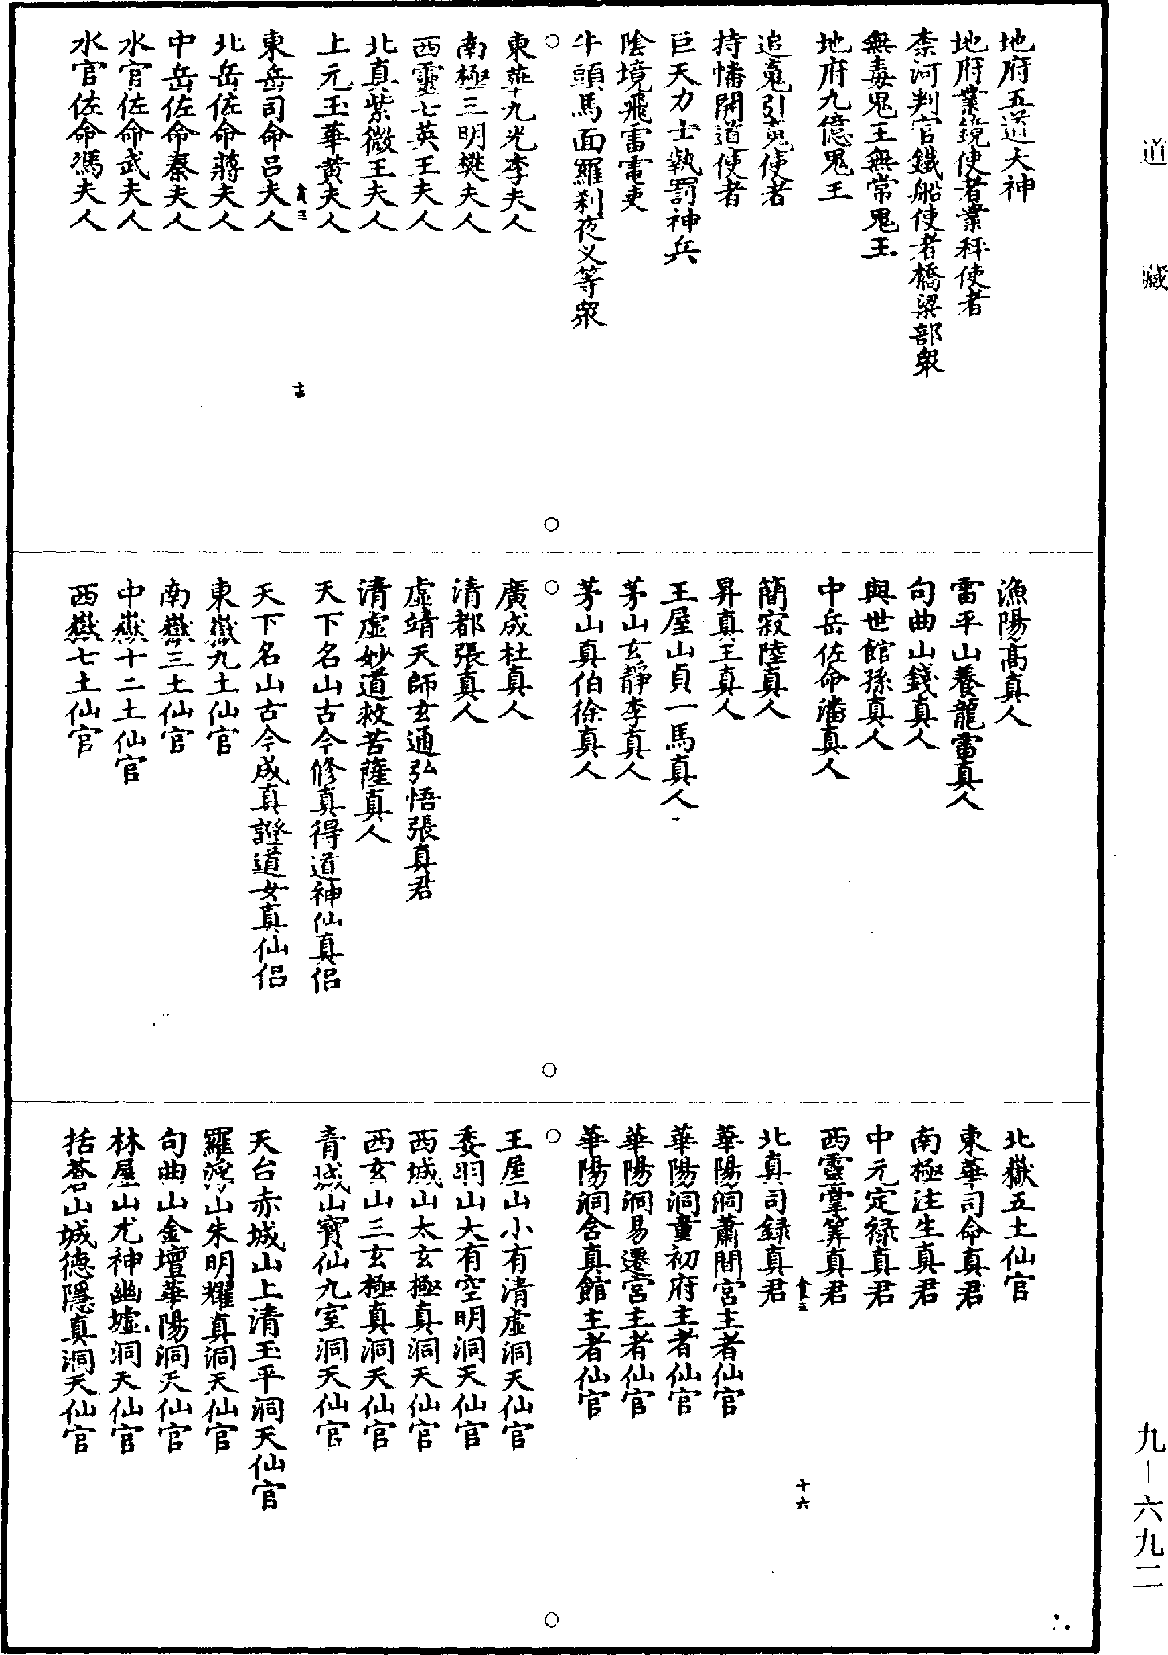 道藏
地府五道大神
地府業鏡使者業秤使者
柰河判官鐵船使者橋梁部衆
無毒鬼王無常鬼王
地府九億鬼王
追䰟引䰟使者
持幡開道使者
巨天力士執罰神兵
陰境飛雷電吏
牛頭馬面羅刹夜叉等衆
東華九光李夫人
南極三明樊夫人
西靈七英王夫人
北真紫微王夫人
上元玉華黃夫人
十五
東岳司命呂夫人
北岳佐命蔣夫人
中岳佐命秦夫人
水官佐命武夫人
水官佐命馮夫人
漁陽高真人
雷平山養龍雷真人
句曲山錢真人
與世館孫真人
中岳佐命潘真人
簡寂陸真人
昇真王真人
王屋山貞一馬真人
茅山玄靜李真人
茅山真伯徐真人
廣成杜真人
清都張真人
虛靖天師玄通弘悟張真君
清虛妙道救苦薩真人
天下名山古今修真得道神仙真侶
天下名山古今成真證道女真仙侶
東嶽九土仙官
南嶽三土仙官
中嶽十二土仙官
西嶽七土仙官
北嶽五土仙官
東華司命真君
南極注生真君
中元定祿真君
西靈掌筭真君
十六
北真司録真君
華陽洞蕭閒宮主者仙官
華陽洞童初府主者仙官
華陽洞易遷宮主者仙官
華陽洞含真館主者仙官
王屋山小有清虛洞天仙官
委羽山大有空明洞天仙官
西城山太玄極真洞天仙官
西玄山三玄極真洞天仙官
青城山寶仙九室洞天仙官
天台赤城山上清玉平洞天仙官
羅浮山朱明耀真洞天仙官
句曲山金壇華陽洞天仙官
林屋山尤神幽墟洞天仙官
括蒼山城德隱真洞天仙官
九－六九二